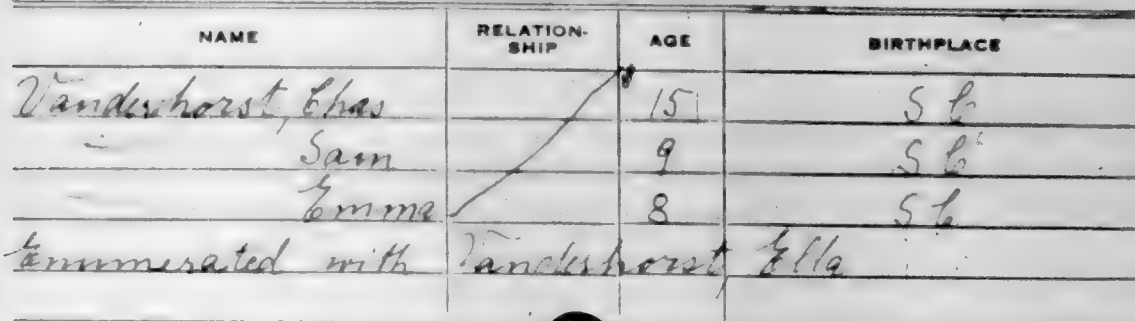 NAME RELATION-SHIP AGE BIRTHPLACE
Vanderhorst, Chas 15 S C
" Sam 9 S C
" Emma 8 S C
Enumerated with Vanderhorst, Ella